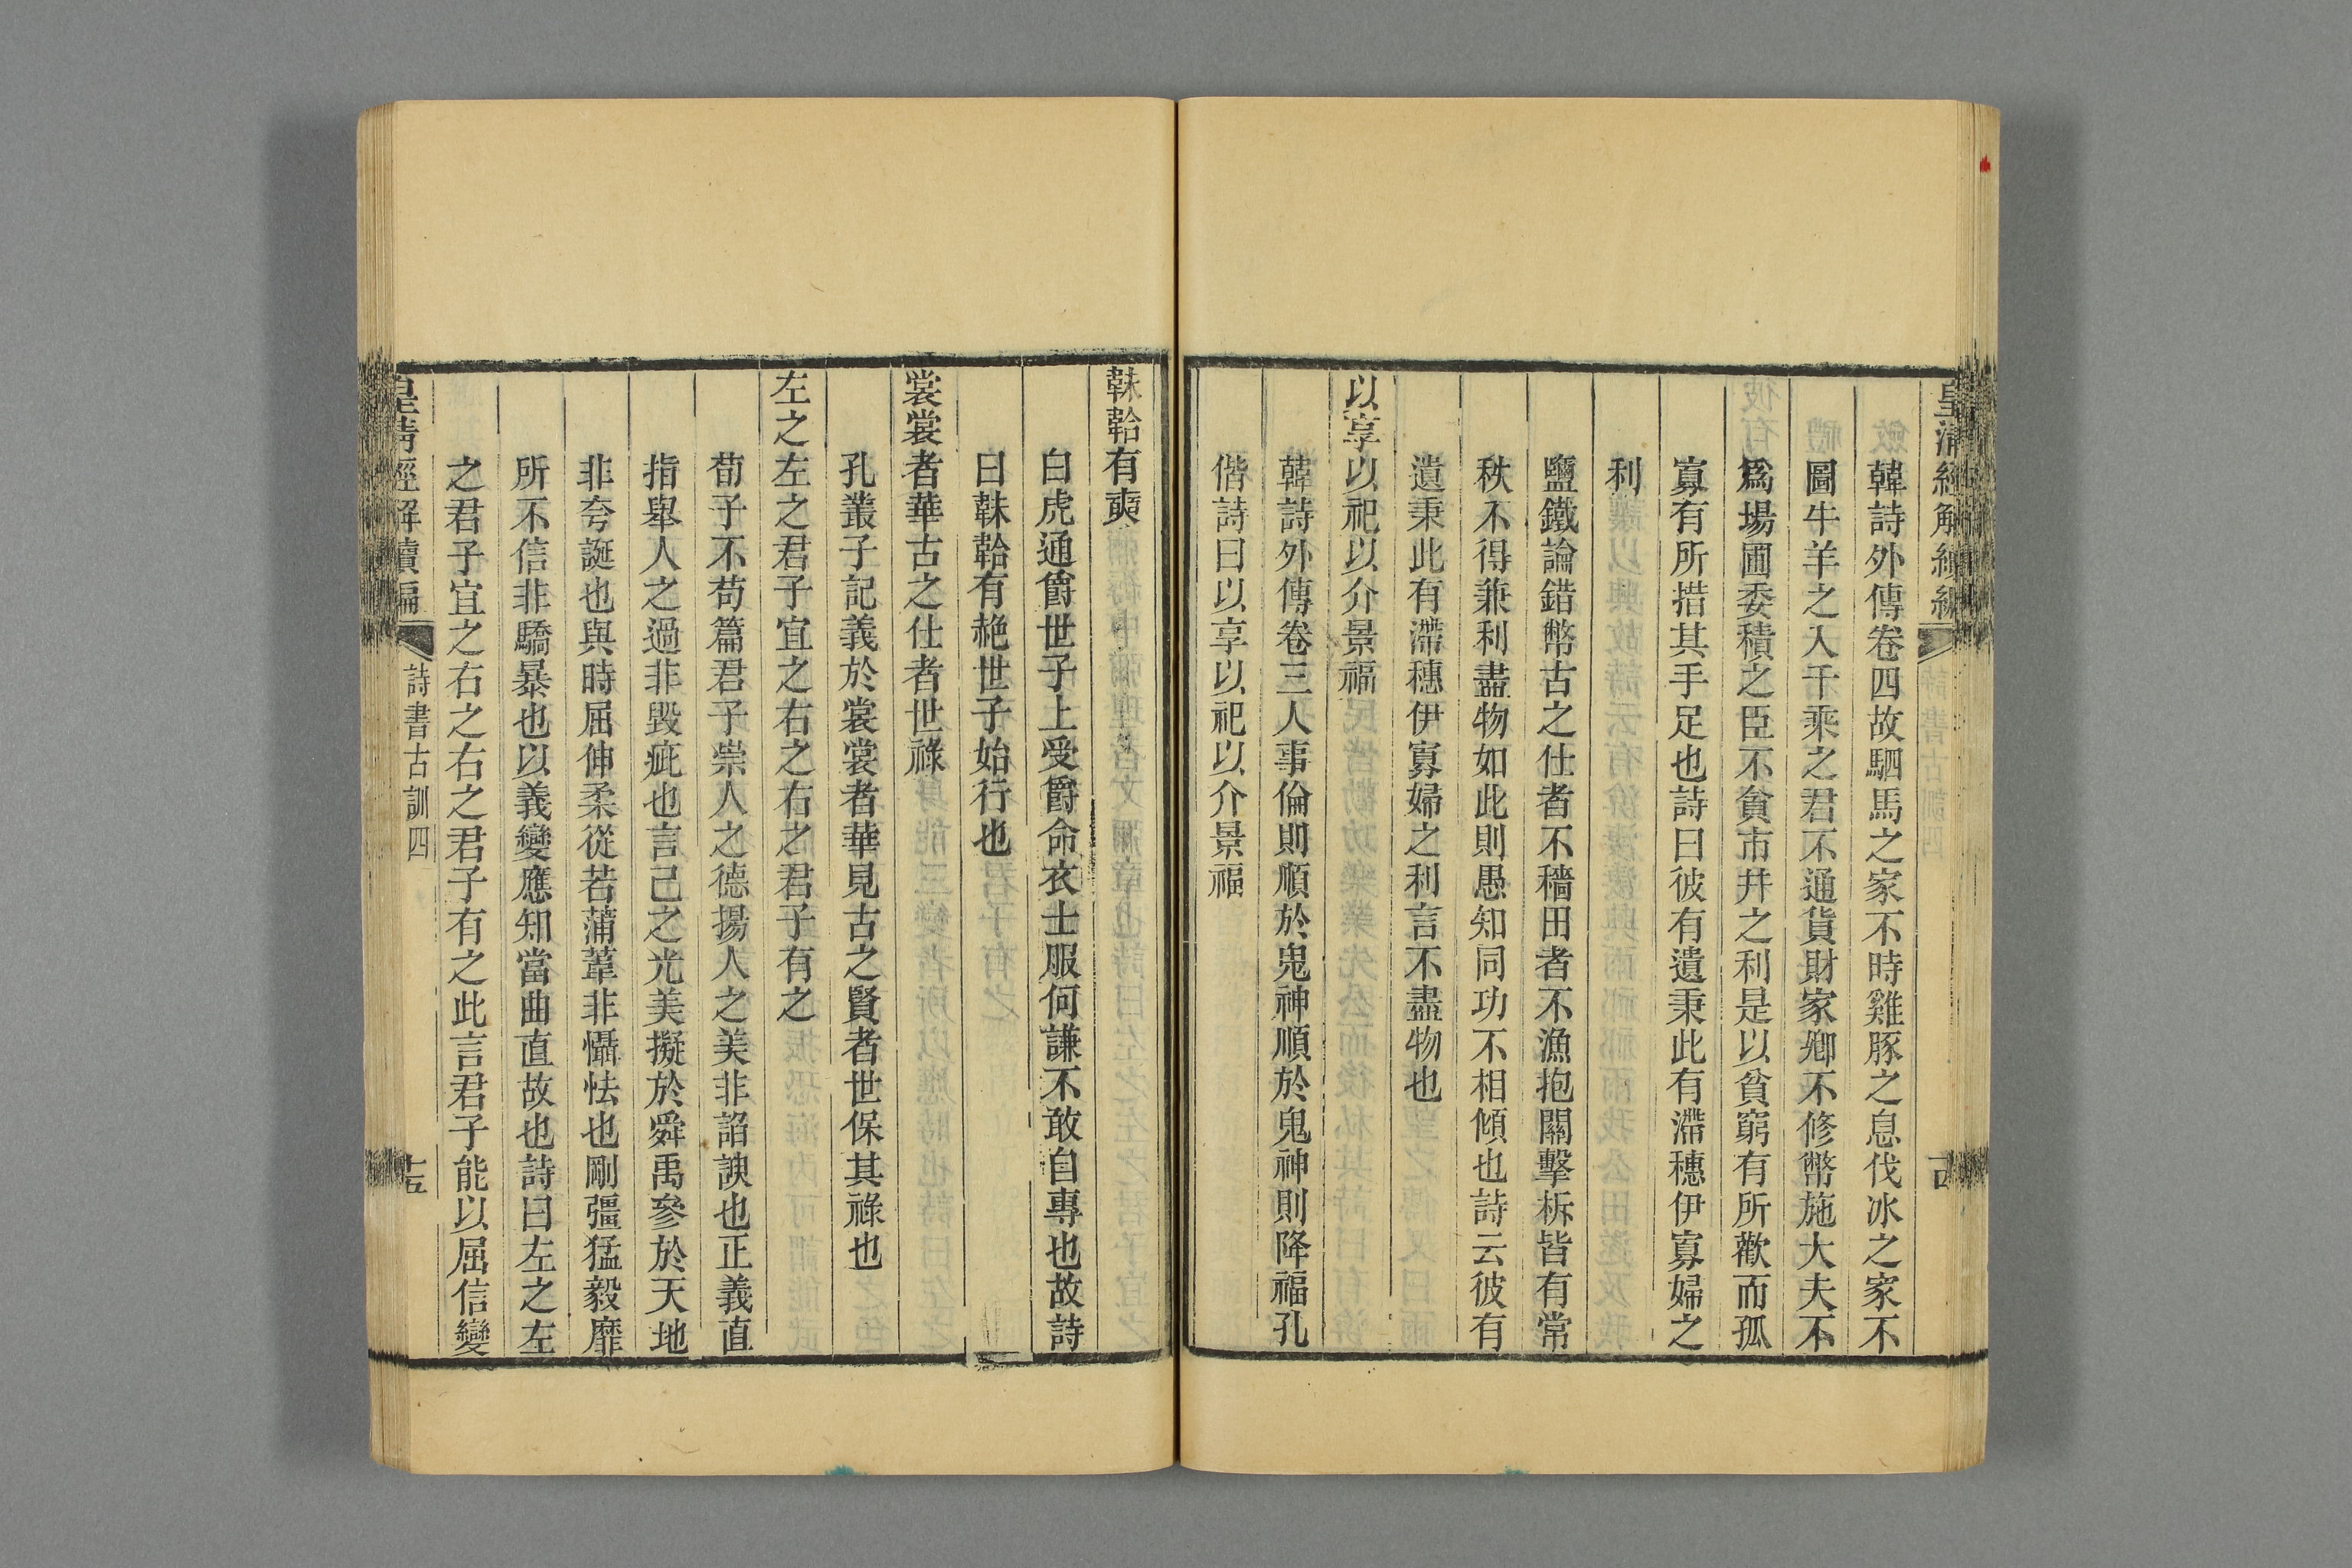 皇清經解續編
韓詩外傳卷四故駟馬之家不時雞豚之息伐冰之家不
圖牛羊之入千乘之君不通貨財冢卿不修幣施大夫不
爲場圃委積之臣不貪市井之利是以貧窮有所歡而孤
寡有所措其手足也詩曰彼有遺秉此有滯穗伊寡婦之
利
鹽鐵論錯幣古之仕者不穡田者不漁抱關擊柝皆有常
秩不得兼利盡物如此則愚知同功不相傾也詩云彼有
遺秉此有滯穗伊寡婦之利言不盡物也
以享以祀以介景福
韓詩外傳卷三人事倫則順於鬼神順於鬼神則降福孔
偕詩曰以享以祀以介景福
韎韐有奭
白虎通爵世子上受爵命衣士服何謙不敢自專也故詩
曰韎韐有赩世子始行也
裳裳者華古之仕者世祿
孔叢子記義於裳裳者華見古之賢者世保其祿也
左之左之君子宜之右之右之君子有之
荀子不苟篇君子崇人之德揚人之美非諂諛也正義直
指舉人之過非毀疵也言己之光美擬於舜禹參於天地
非夸誕也與時屈伸柔從若蒲葦非懾怯也剛彊猛毅靡
所不信非驕暴也以義變應知當曲直故也詩曰左之左
之君子宜之右之右之君子有之此言君子能以屈信變
皇清經解續編
詩書古訓四